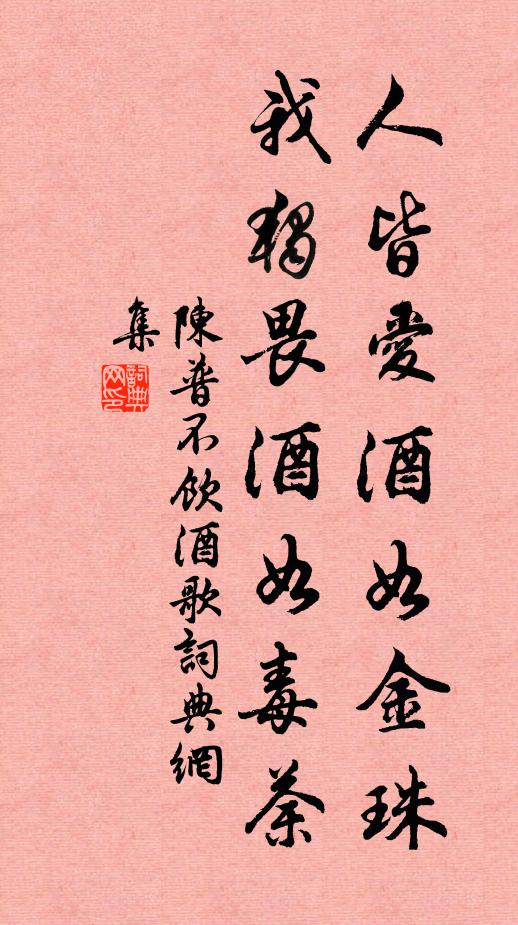 人皆愛酒如金珠
我獨畏酒如毒荼
陳普不飲酒歌詞典網
集
詞典
网印